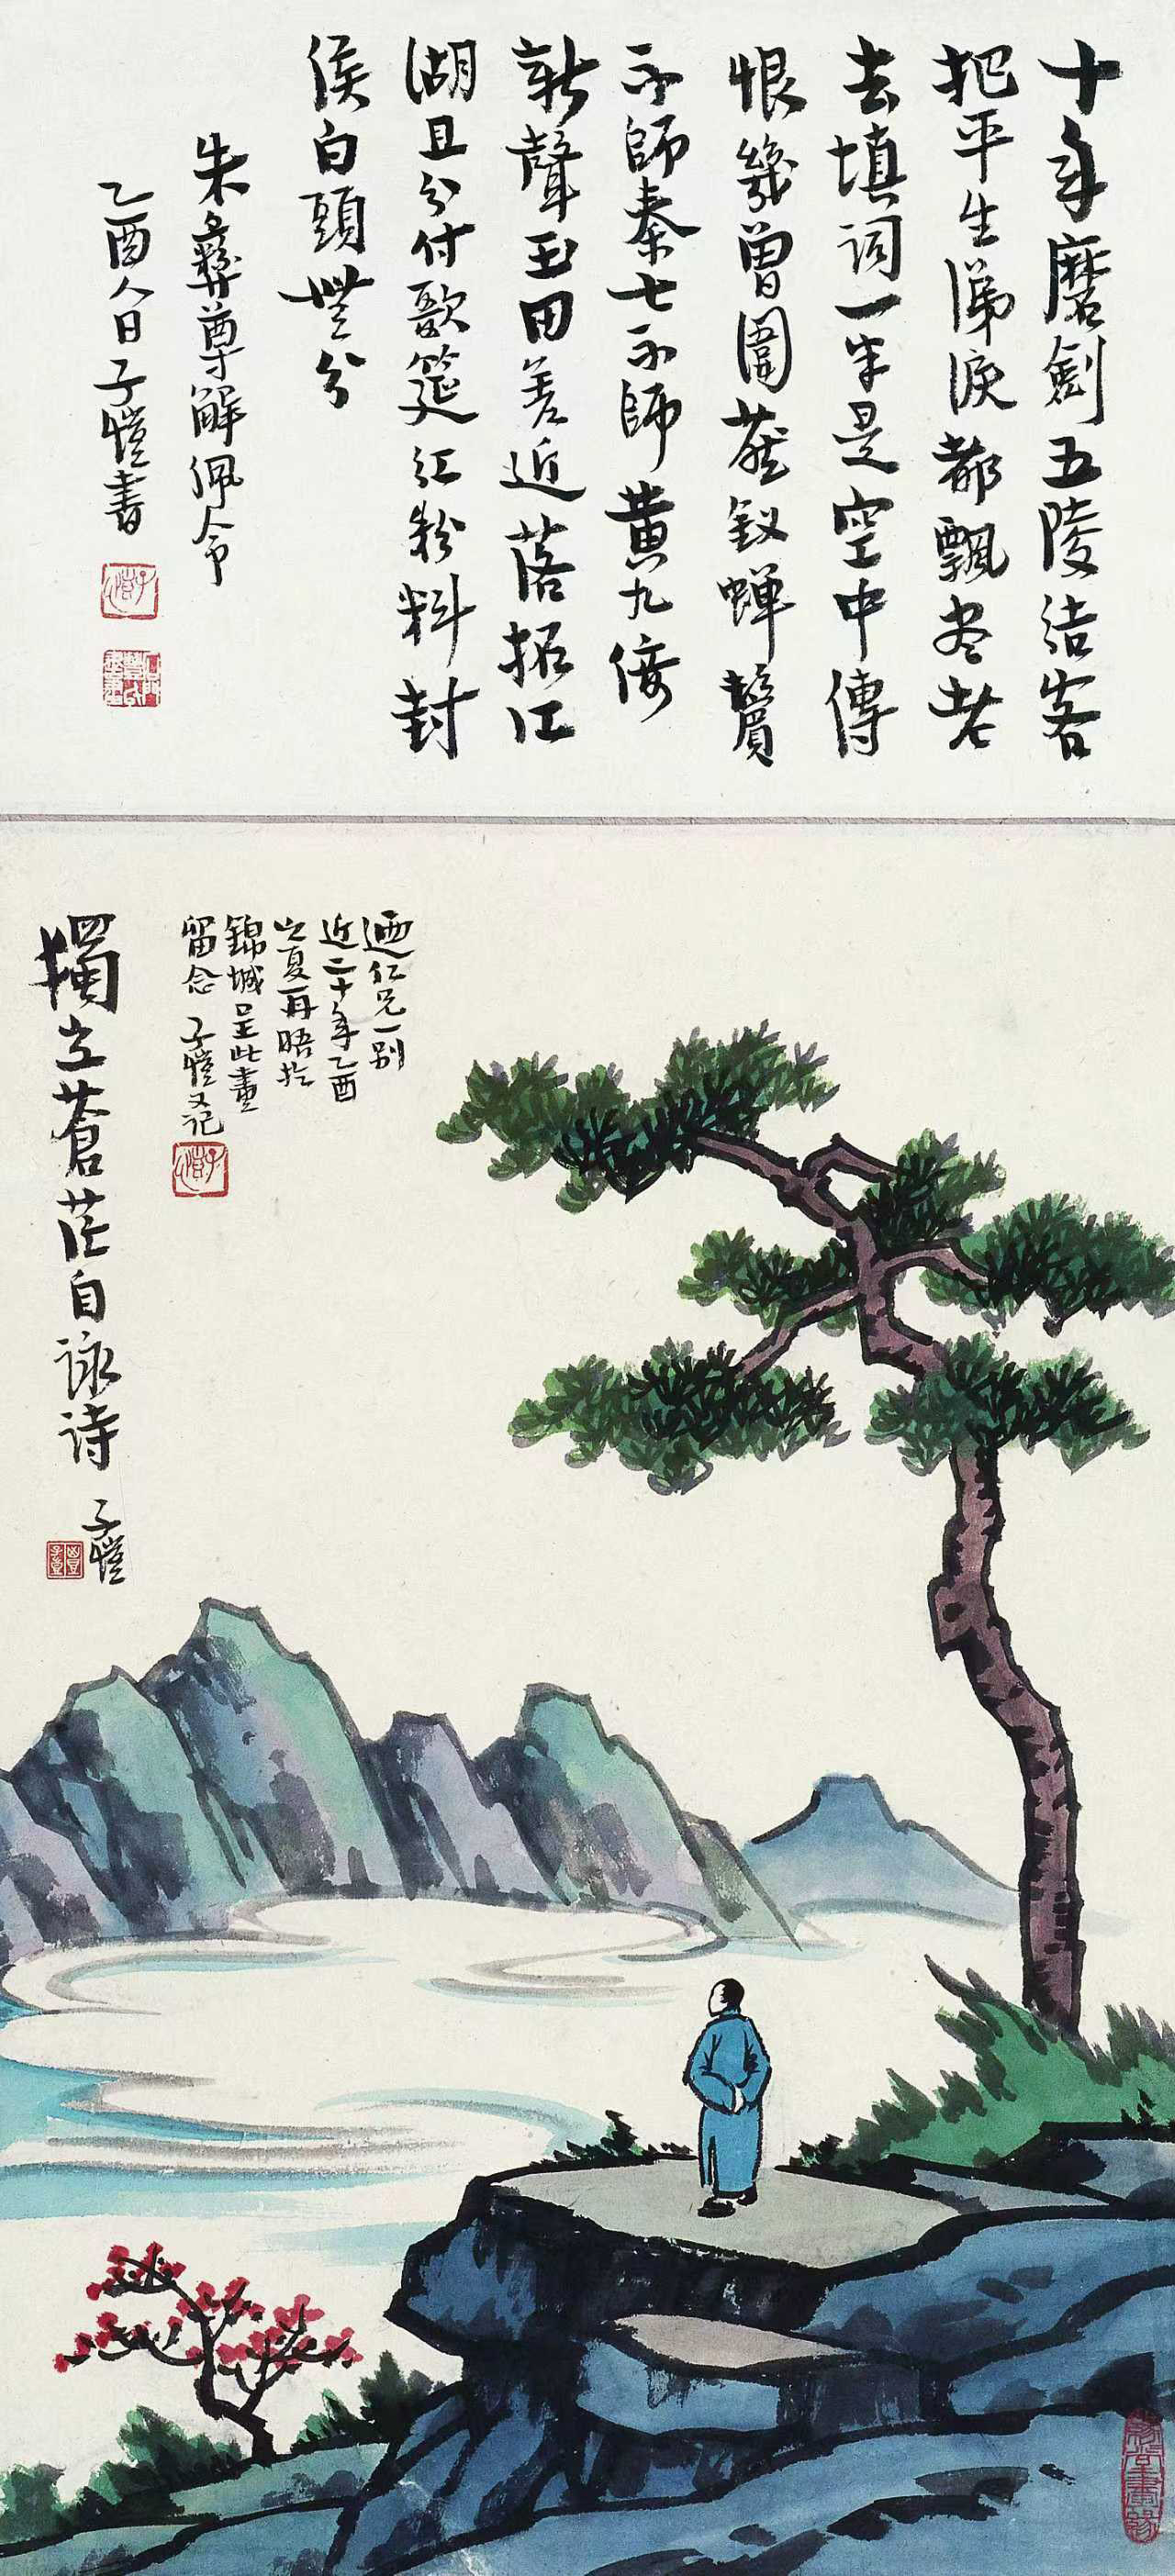 十年磨劍五陵結客
把平生涕淚都飄盡老
去填詞一半是空中傳
恨幾曾圍燕釵蟬鬢
不師秦七不師黃九倚
新聲玉田差近落拓江
湖且分付歌筵紅粉料封
侯白頭無分
朱彝尊解佩令
乙酉人日子愷書
迺仁兄一別
近二十年乙酉
之夏再晤於
錦城呈此畫
留念 子愷又記
獨立蒼茫自詠诗 子愷